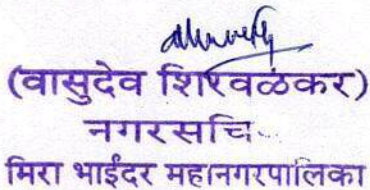 (वासुदेव शिरवळकर)
नगरसचि
मिरा भाईंदर महानगरपालिका